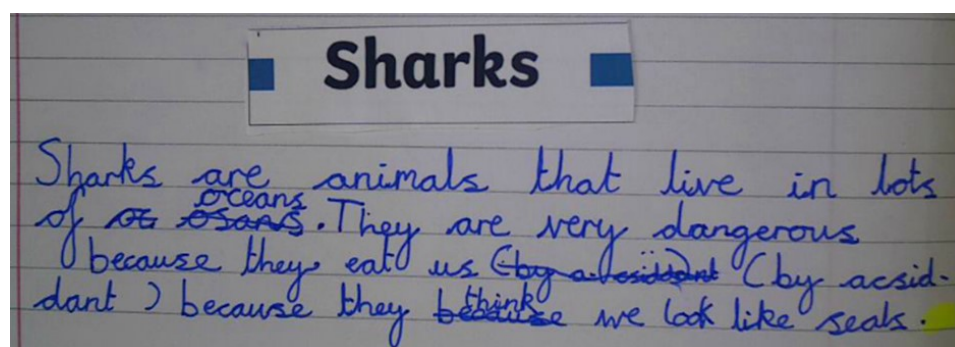 Sharks
Sharks are animals that live in lots
of ot osans oceans. They are very dangerous
because they eat us (by a (by acsid-
dant) because they because think we look like seals.